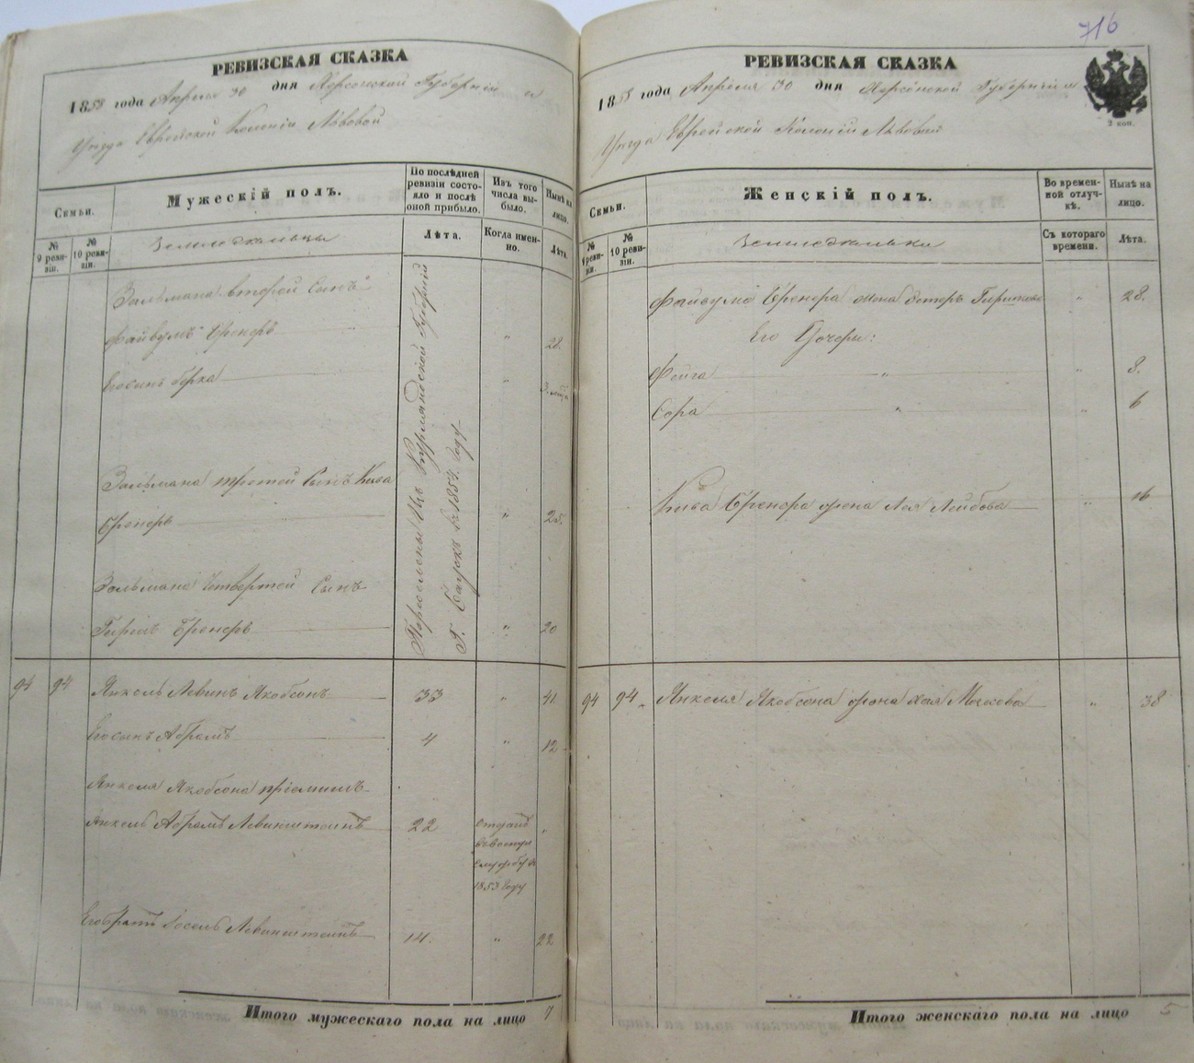 РЕВИЗСКАЯ СКАЗКА
1858 года Апреля 30 дня Херсонской Губерніи и
Уѣзда Еврейской Колоніи Львовой
Семьи.
Мужескій полъ.
По послѣдней ревизіи состояло и послѣ оной прибыло.
Изъ того числа выбыло.
Нынѣ на лицо.
№ 9 ревизіи.
№ 10 ревизіи.
Земледѣльцы
Лѣта.
Когда именно.
Лѣта.
Зальмана второй Сынъ
Файвумъ Бренеръ " 28.
Его сынъ Берка "
Зальмана третій Сынъ Кива
Бренеръ " 25.
Зальмана Четвертой Сынъ
Гиршъ Бренеръ " 20
Переселены изъ Курляндской Губерніи
Г. Бауск въ 185 Году
94 94 Янкель Левинъ Якобсонъ 33 " 41.
Его сынъ Абрамъ 4 " 12.
Янкеля Якобсона пріемышъ
Янкель Абрамъ Левинштейнъ 22
отданъ
1853 году
Его братъ Іосель Левинштейнъ 14. " 22
Итого мужескаго пола на лицо 7
716
РЕВИЗСКАЯ СКАЗКА
1858 года Апрѣля 30 дня Херсонской Губерніи и
Уѣзда Еврейской Колоніи Львовой
2 коп.
Семьи.
Женскій полъ.
Во временной отлучкѣ.
Нынѣ на лицо.
№ 9 ревизіи.
№ 10 ревизіи.
Земледѣльки
Съ котораго времени.
Лѣта.
Файвума Бренера жена " 28.
Его Дочери:
Фейга " " 8.
Сора " " 6
Кива Бренера жена Лея Лейбова " 16
94 94 Янкеля Якобсона жена Хая Мысеова " 38
Итого женскаго пола на лицо 5